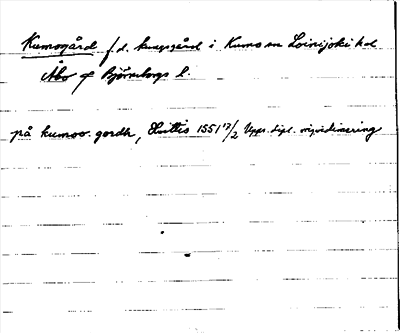 Kumogård f.d. kungsgård i Kumo sn Loimijoki hd
Åbo o Björneborgs l.
på kumoo gordh, Huittis 1551 17/2 Upps. dipl. orig.vidimering